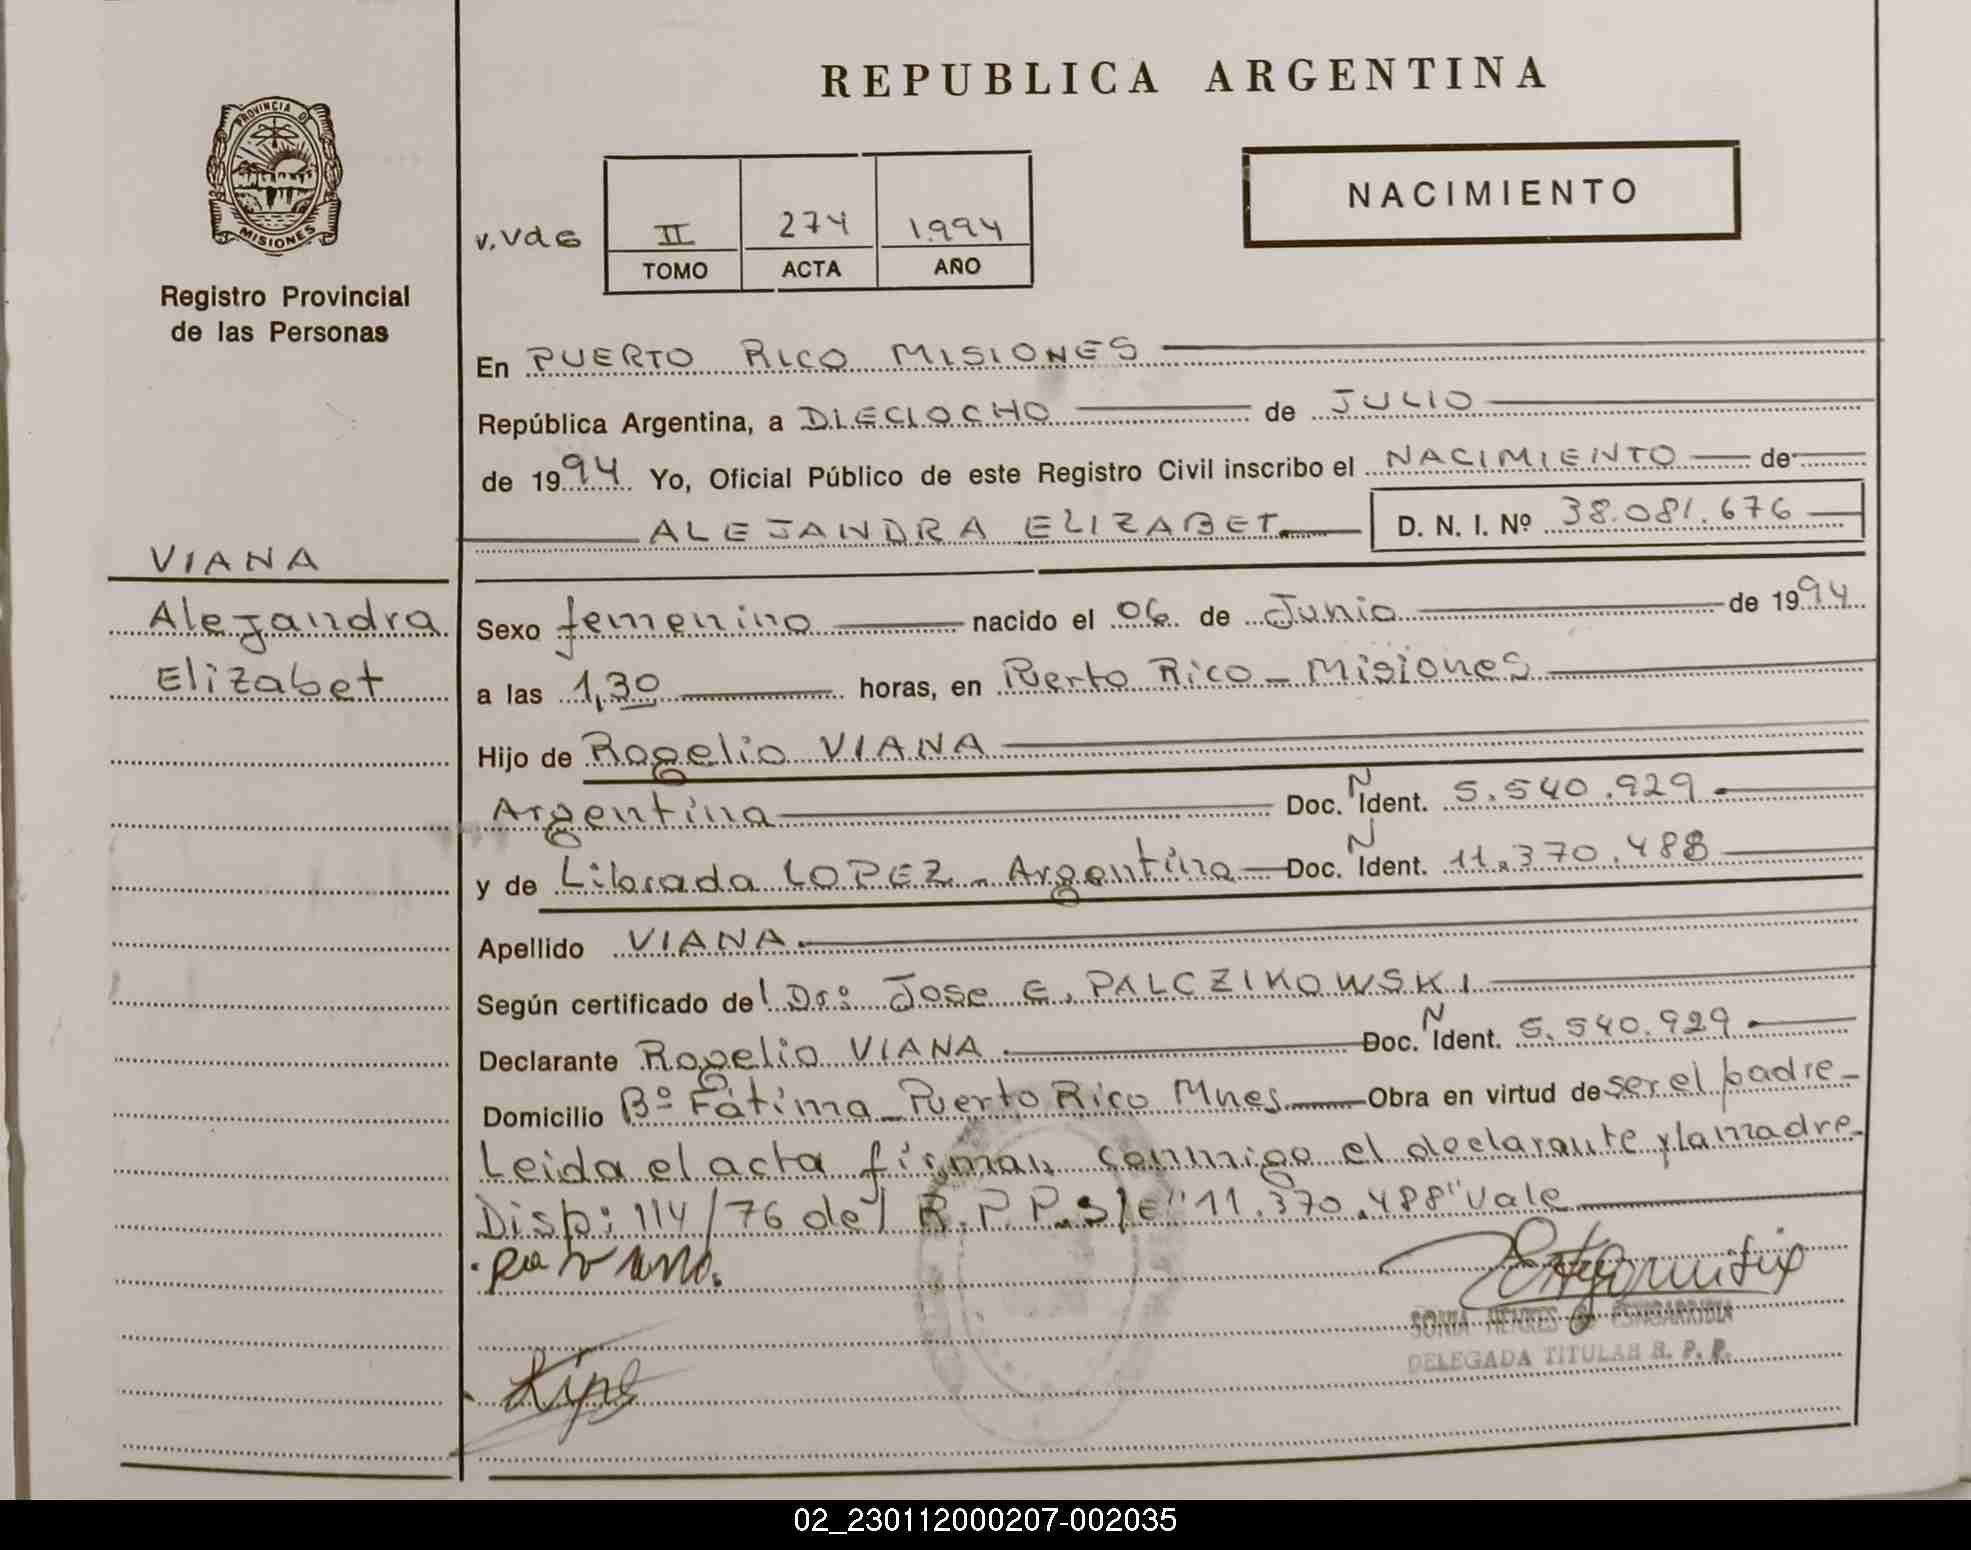 REPUBLICA ARGENTINA
PROVINCIA D
MISIONES
Registro Provincial
de las Personas
NACIMIENTO
II 274 1994
TOMO ACTA AÑO
En PUERTO RICO MISIONES
República Argentina, a DIECIOCHO de JULIO
de 1994 Yo, Oficial Público de este Registro Civil inscribo el NACIMIENTO de
ALEJANDRA ELIZABET D. N. I. Nº 38.081.676
VIANA
Alejandra
Elizabet
Sexo femenino nacido el 06 de Junio de 1994
a las 1,30 horas, en Puerto Rico - Misiones
Hijo de Rogelio VIANA
Argentina Doc. N Ident. 5.540.929
y de Librada LOPEZ - Argentina Doc. N Ident. 11.370.488
Apellido VIANA
Según certificado del Dr: Jose E. PALCZIKOWSKI
Declarante Rogelio VIANA Doc. N Ident. 5.540.929
Domicilio Bº Fátima - Puerto Rico Mnes Obra en virtud de ser el padre -
Leida el acta firman conmigo el declarante y la madre -
Disp: 114/76 del R.P.P. S/E "11.370.488" Vale
SONIA HENKES
DELEGADA TITULAR R. P. P.
02_230112000207-002035